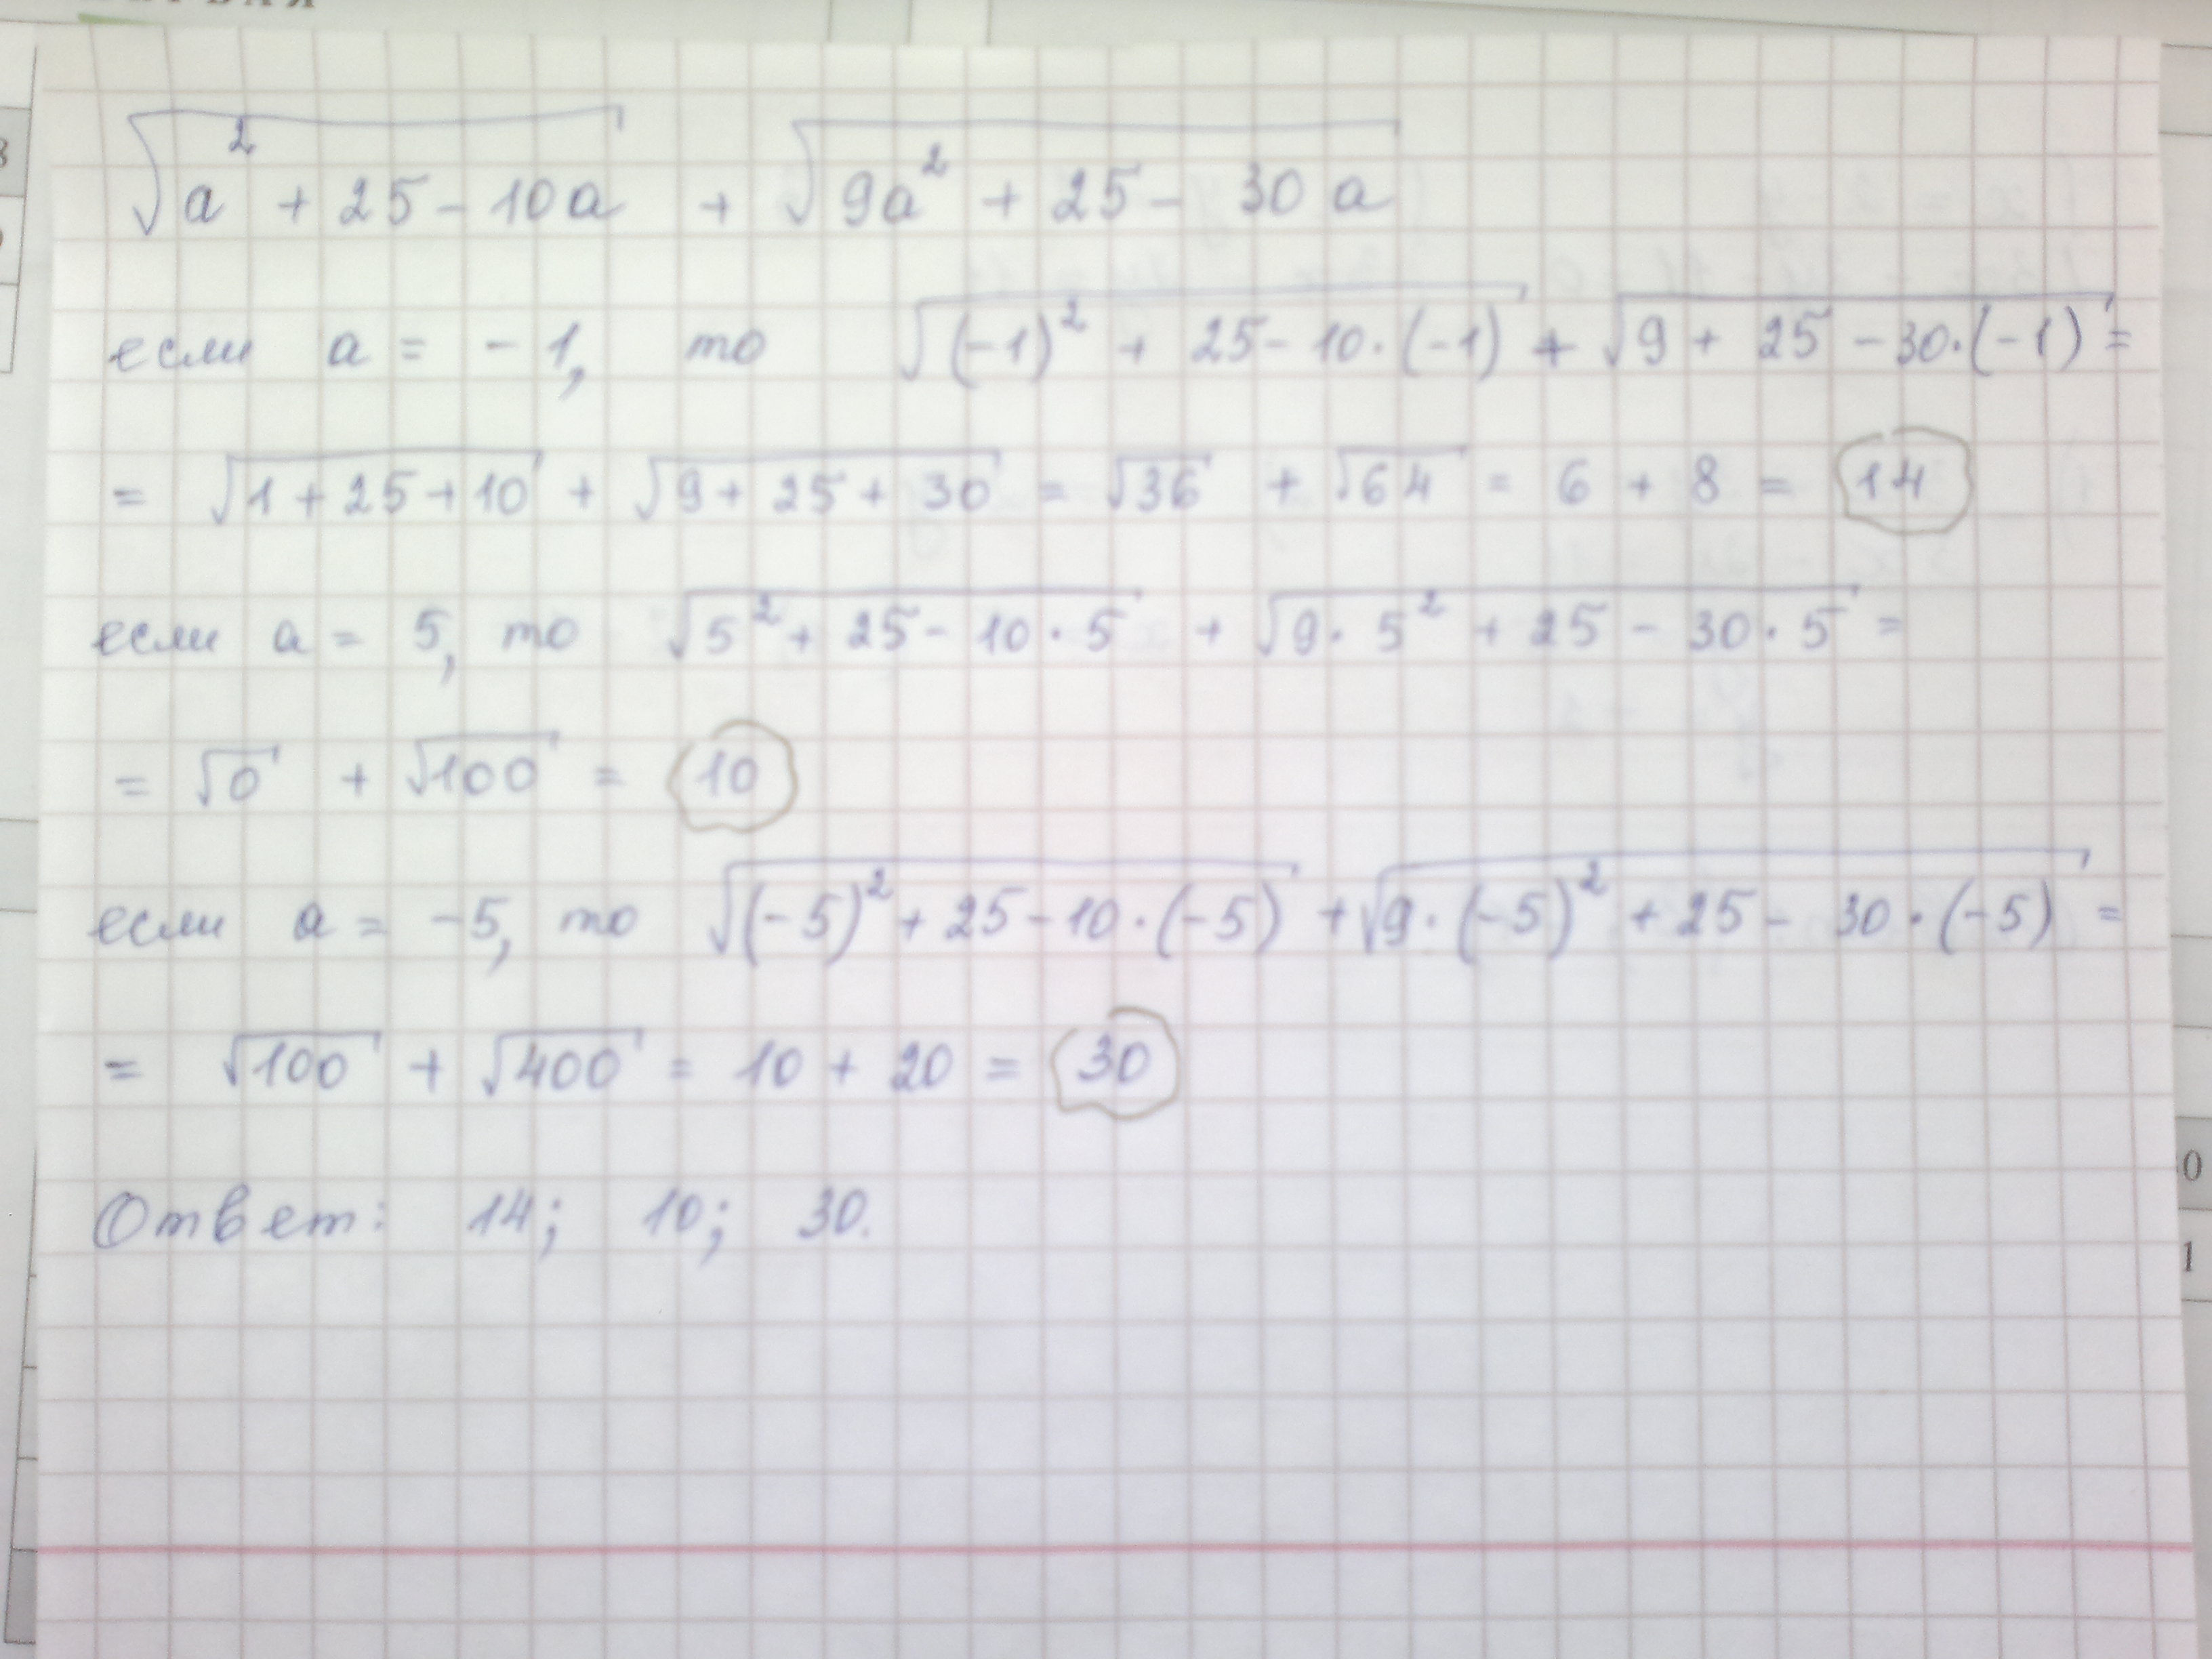 √(a² + 25 - 10a) + √(9a² + 25 - 30a)
если a = -1, то √((-1)² + 25 - 10·(-1)) + √(9 + 25 - 30·(-1)) =
= √(1 + 25 + 10) + √(9 + 25 + 30) = √36 + √64 = 6 + 8 = 14
если a = 5, то √(5² + 25 - 10·5) + √(9·5² + 25 - 30·5) =
= √0 + √100 = 10
если a = -5, то √((-5)² + 25 - 10·(-5)) + √(9·(-5)² + 25 - 30·(-5)) =
= √100 + √400 = 10 + 20 = 30
0
1
Ответ: 14; 10; 30.